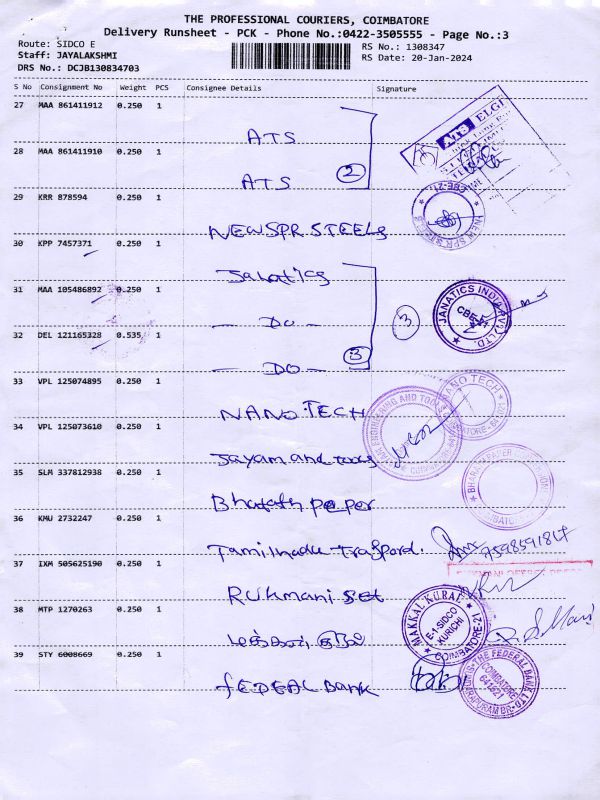 THE PROFESSIONAL COURIERS, COIMBATORE
Delivery Runsheet - PCK - Phone No.:0422-3505555 - Page No.:3
Route: SIDCO E
RS No.: 1308347
Staff: JAYALAKSHMI
RS Date: 20-Jan-2024
DRS No.: DCJB130834703
S No Consignment No Weight PCS Consignee Details Signature
27 MAA 861411912 0.250 1
ATS
ATS ELGI
28 MAA 861411910 0.250 1
ATS
2
29 KRR 878594 0.250 1
NEWSPR STEELS
NEW SPR STEELS
CBE-21.
30 KPP 7457371 0.250 1
Janatics
31 MAA 105486892 0.250 1
- DO -
3
JANATICS INDIA PVT LTD
CBE-21
32 DEL 121165328 0.535 1
- DO -
3
33 VPL 125074895 0.250 1
NANO TECH
NANO TECH
COIMBATORE
34 VPL 125073610 0.250 1
Jayam and tools
ENGINEERING AND TOOLS
35 SLM 337812938 0.250 1
Bharath paper
BHARATH PAPER
COIMBATORE
36 KMU 2732247 0.250 1
Tamilnadu Traspord.
7598591847
37 IXM 505625190 0.250 1
Rukmani
38 MTP 1270263 0.250 1
மக்கள் குரல்
MAKKAL KURAL
E-1 SIDCO
KURICHI
COIMBATORE-21
39 STY 6008669 0.250 1
fEDEAL BANK
THE FEDERAL BANK LTD
COIMBATORE
641021